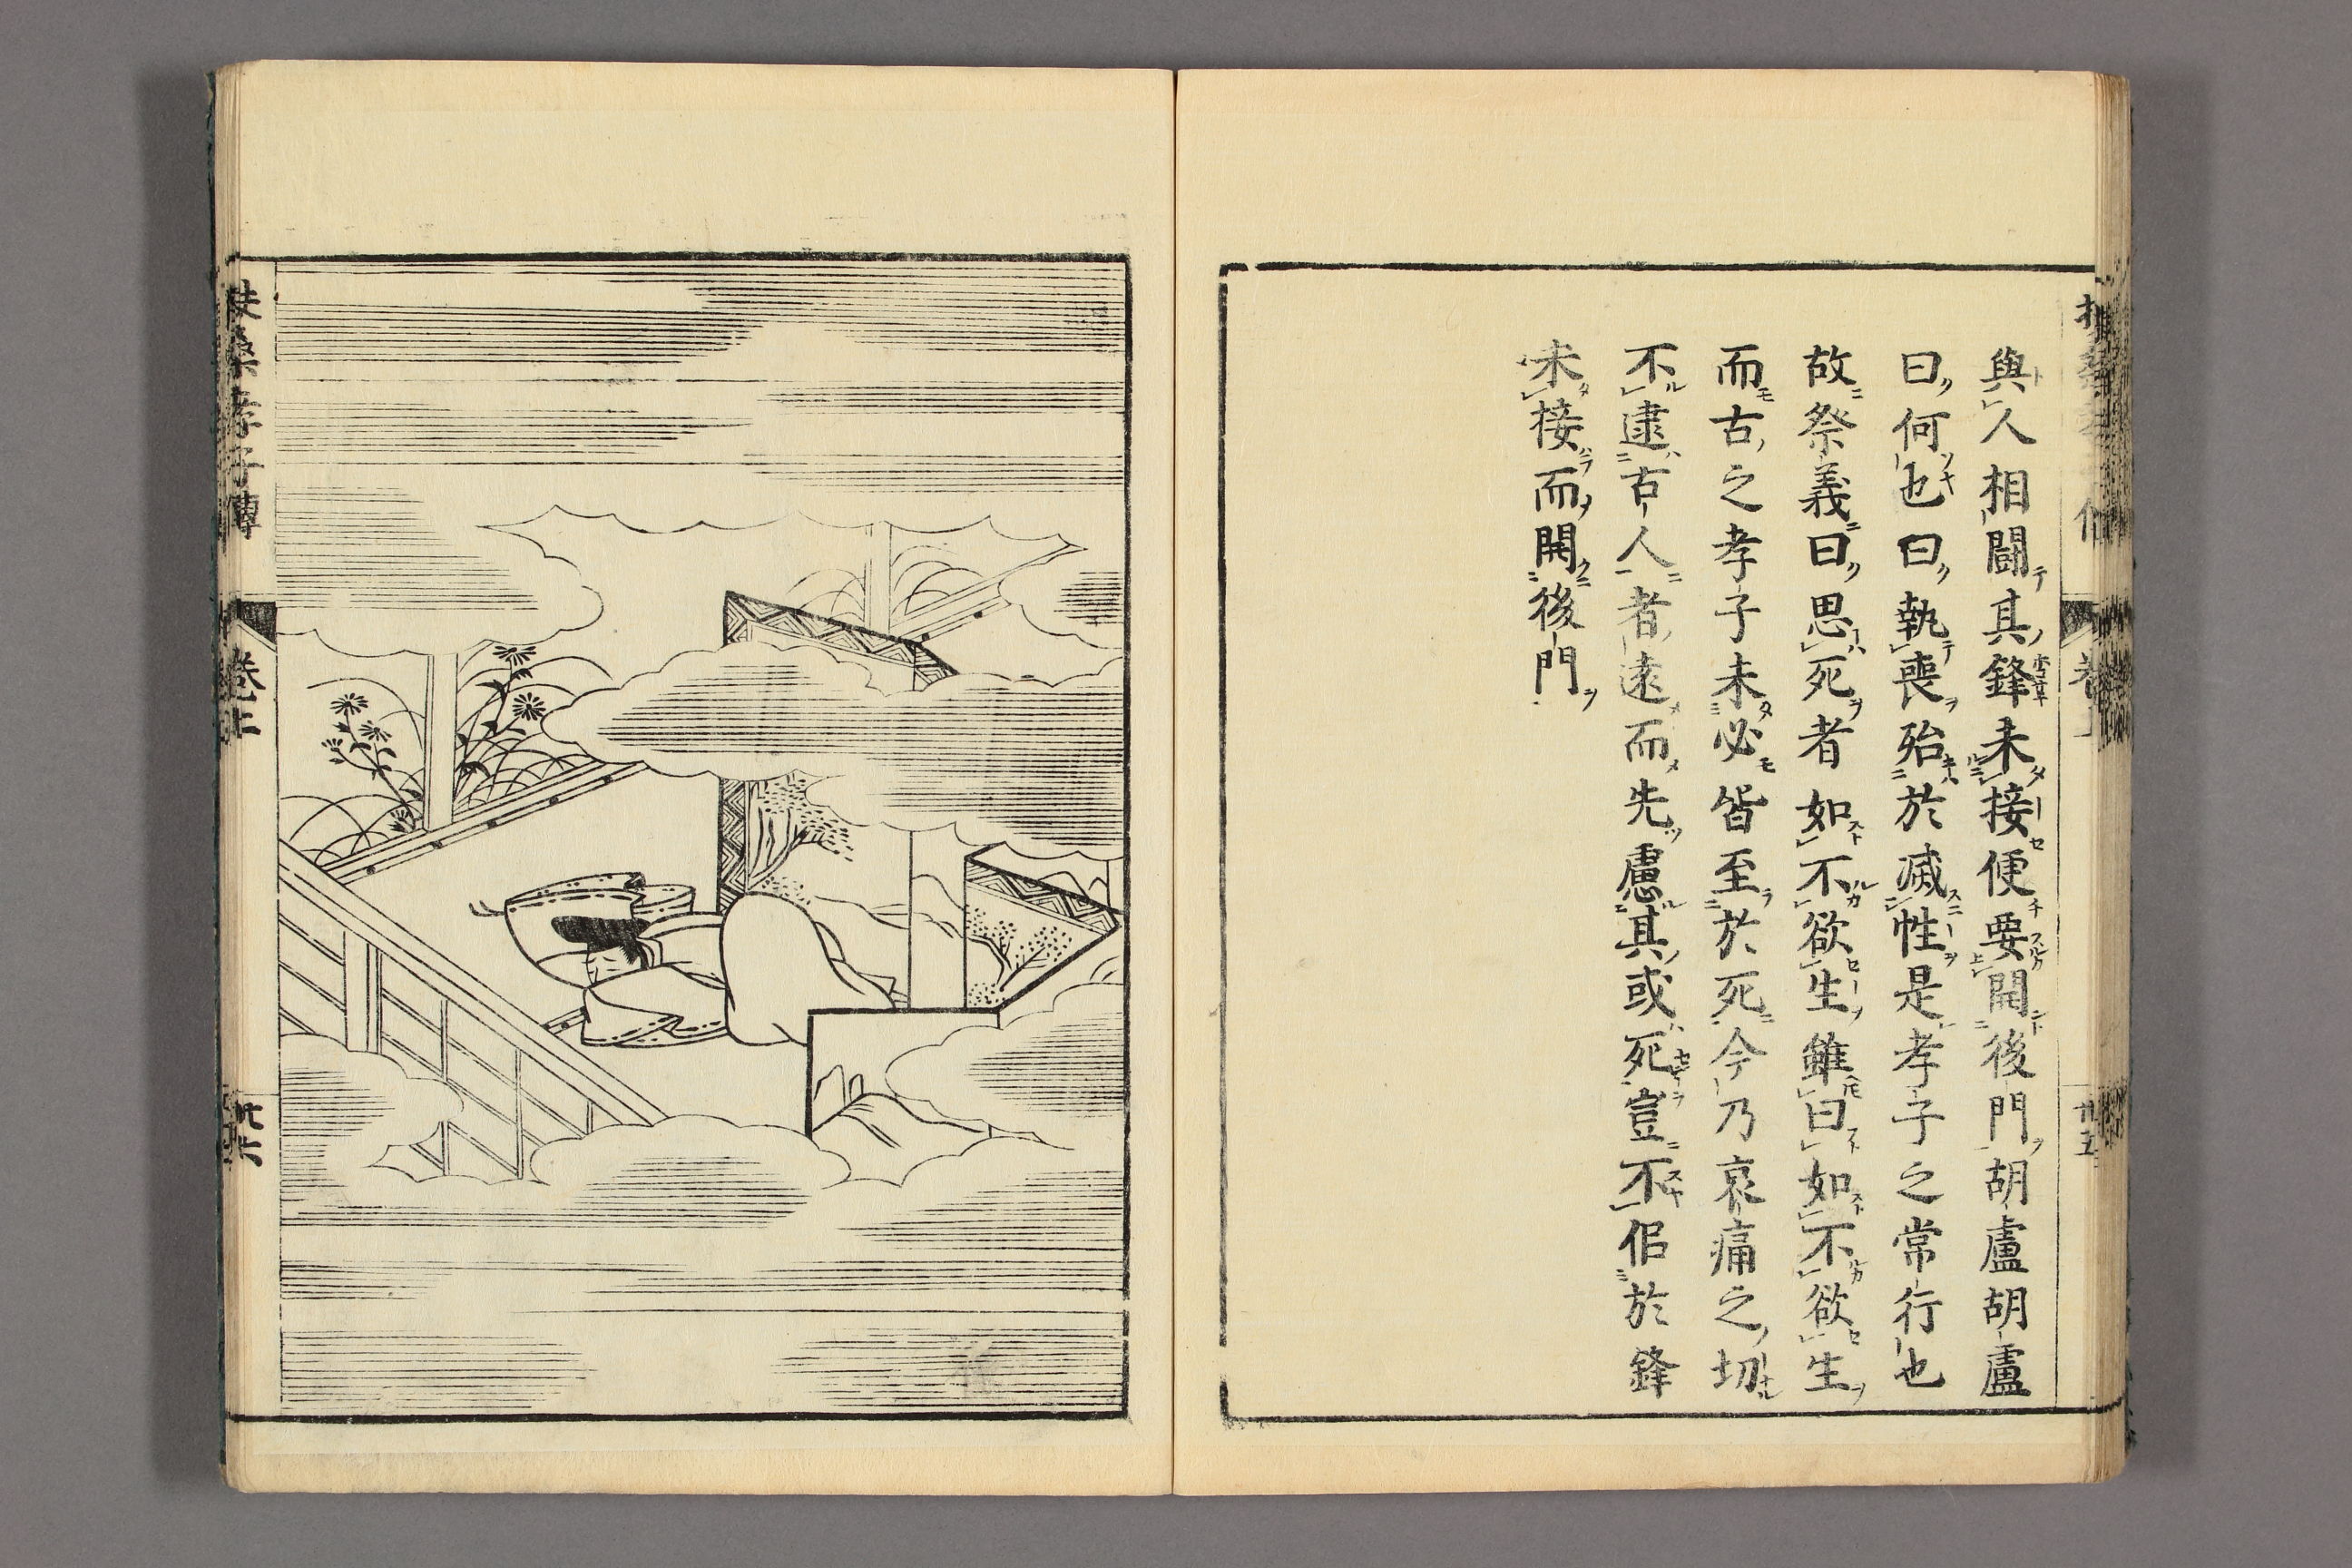 與人相闘其鋒未接便要開後門胡盧胡盧
曰何也曰執喪殆於滅性是孝子之常行也
故祭義曰思死者如不欲生雖曰如不欲生
而古之孝子未必皆至於死今乃哀痛之切
不逮古人者遠而先慮其或死豈不佀於鋒
未接而開後門
扶桑孝子傳
卷上
廿六